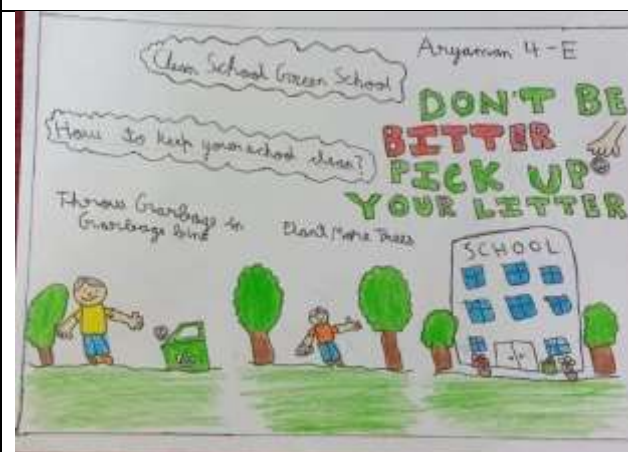 Clean School Green School
Aryaman 4-E
How to keep your school clean?
DON'T BE
BITTER
PICK UP
YOUR LITTER
Throw Garbage in
Garbage bins
Plant More Trees
SCHOOL